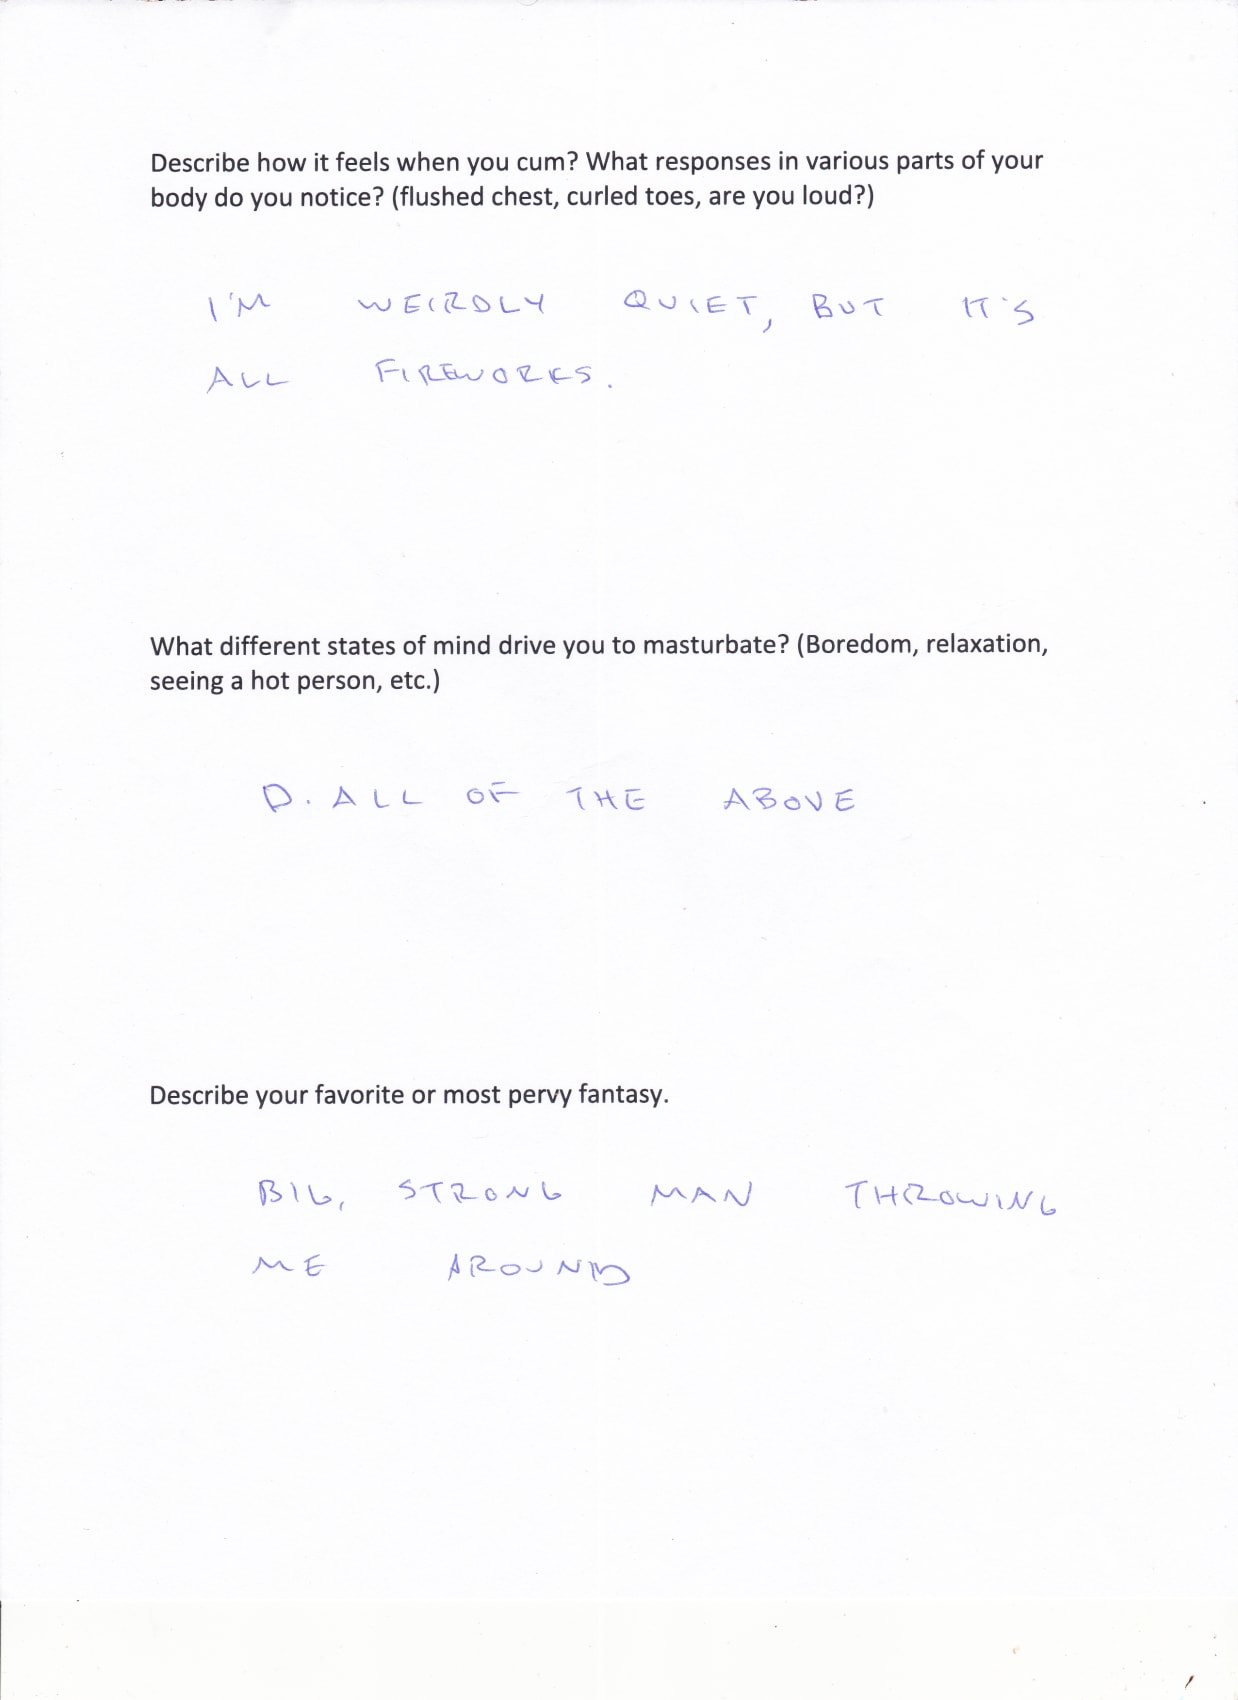 Describe how it feels when you cum? What responses in various parts of your
body do you notice? (flushed chest, curled toes, are you loud?)
I'M WEIRDLY QUIET, BUT IT'S
ALL FIREWORKS.
What different states of mind drive you to masturbate? (Boredom, relaxation,
seeing a hot person, etc.)
D. ALL OF THE ABOVE
Describe your favorite or most pervy fantasy.
BIG, STRONG MAN THROWING
ME AROUND